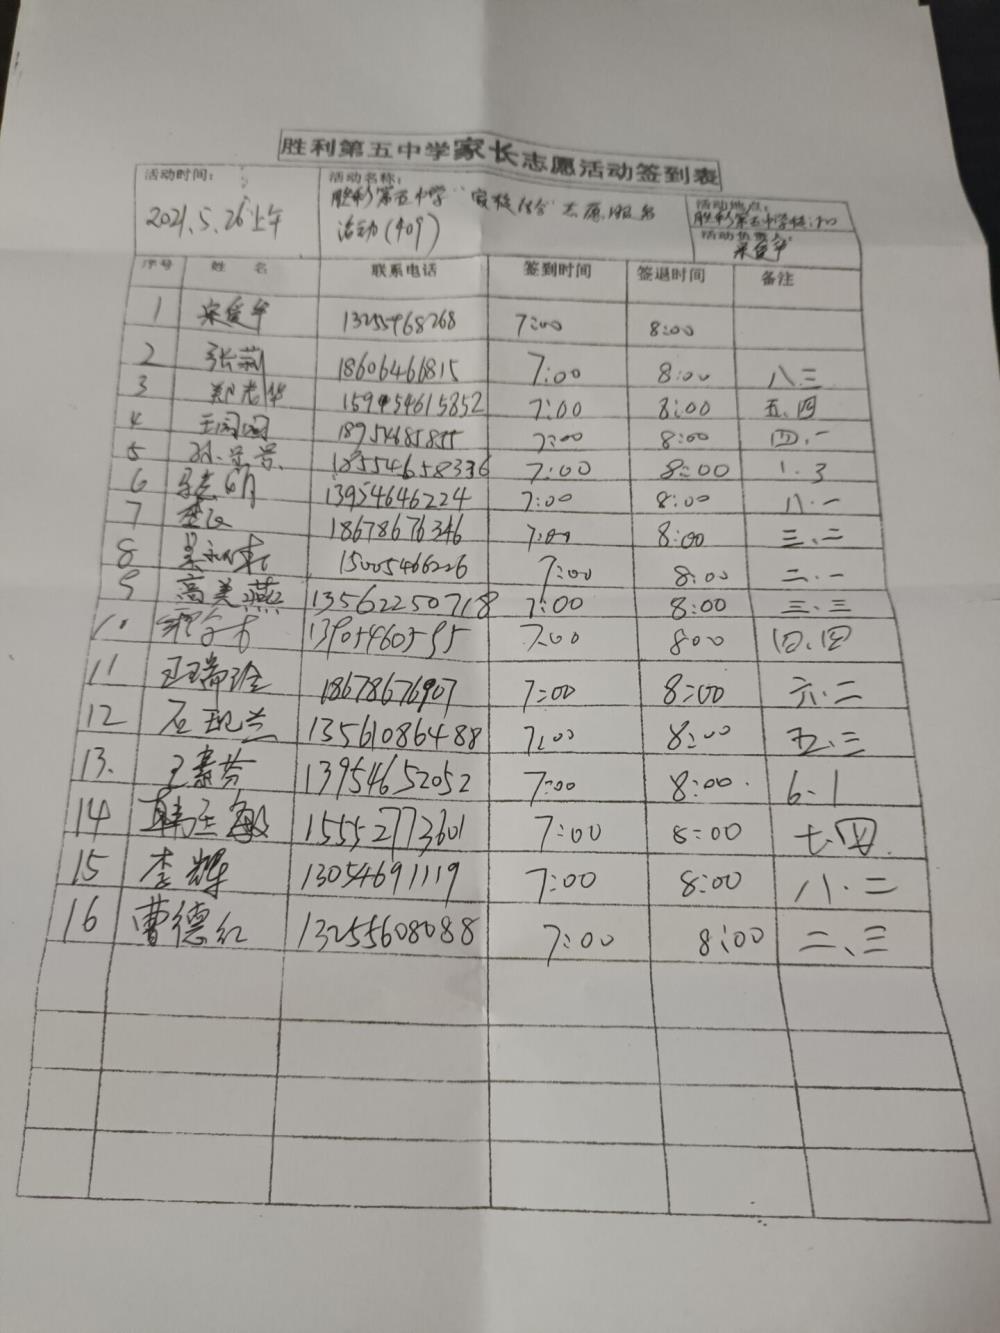 胜利第五中学家长志愿活动签到表
活动时间：
2021.5.26上午
活动名称：
胜利第五中学"家校结合"志愿服务
活动(409)
活动地点：
胜利第五中学校门口
活动负责人：
宋爱华
序号 姓名 联系电话 签到时间 签退时间 备注
1 宋爱华 13255468268 7:00 8:00
2 张莉 18606466815 7:00 8:00 八.三
3 郑光华 159454615852 7:00 8:00 五、四
4 王闻闻 7:00 8:00 四.一
5 18554658336 7:00 8:00 1.3
6 13954646224 7:00 8:00 八.一
7 18678676346 7:00 8:00 三、二
8 15005466226 7:00 8:00 二.一
9 高美燕 13562250718 7:00 8:00 三.三
10 13905460595 7:00 8:00 四、四
11 王瑞玲 18678676907 7:00 8:00 六.二
12 石现兰 13561086488 7:00 8:00 五、三
13. 王素芬 13954652052 7:00 8:00 6.1
14 韩玉敏 15552773601 7:00 8:00 七.四
15 李辉 13054691119 7:00 8:00 八.二
16 曹德红 13255608088 7:00 8:00 二、三